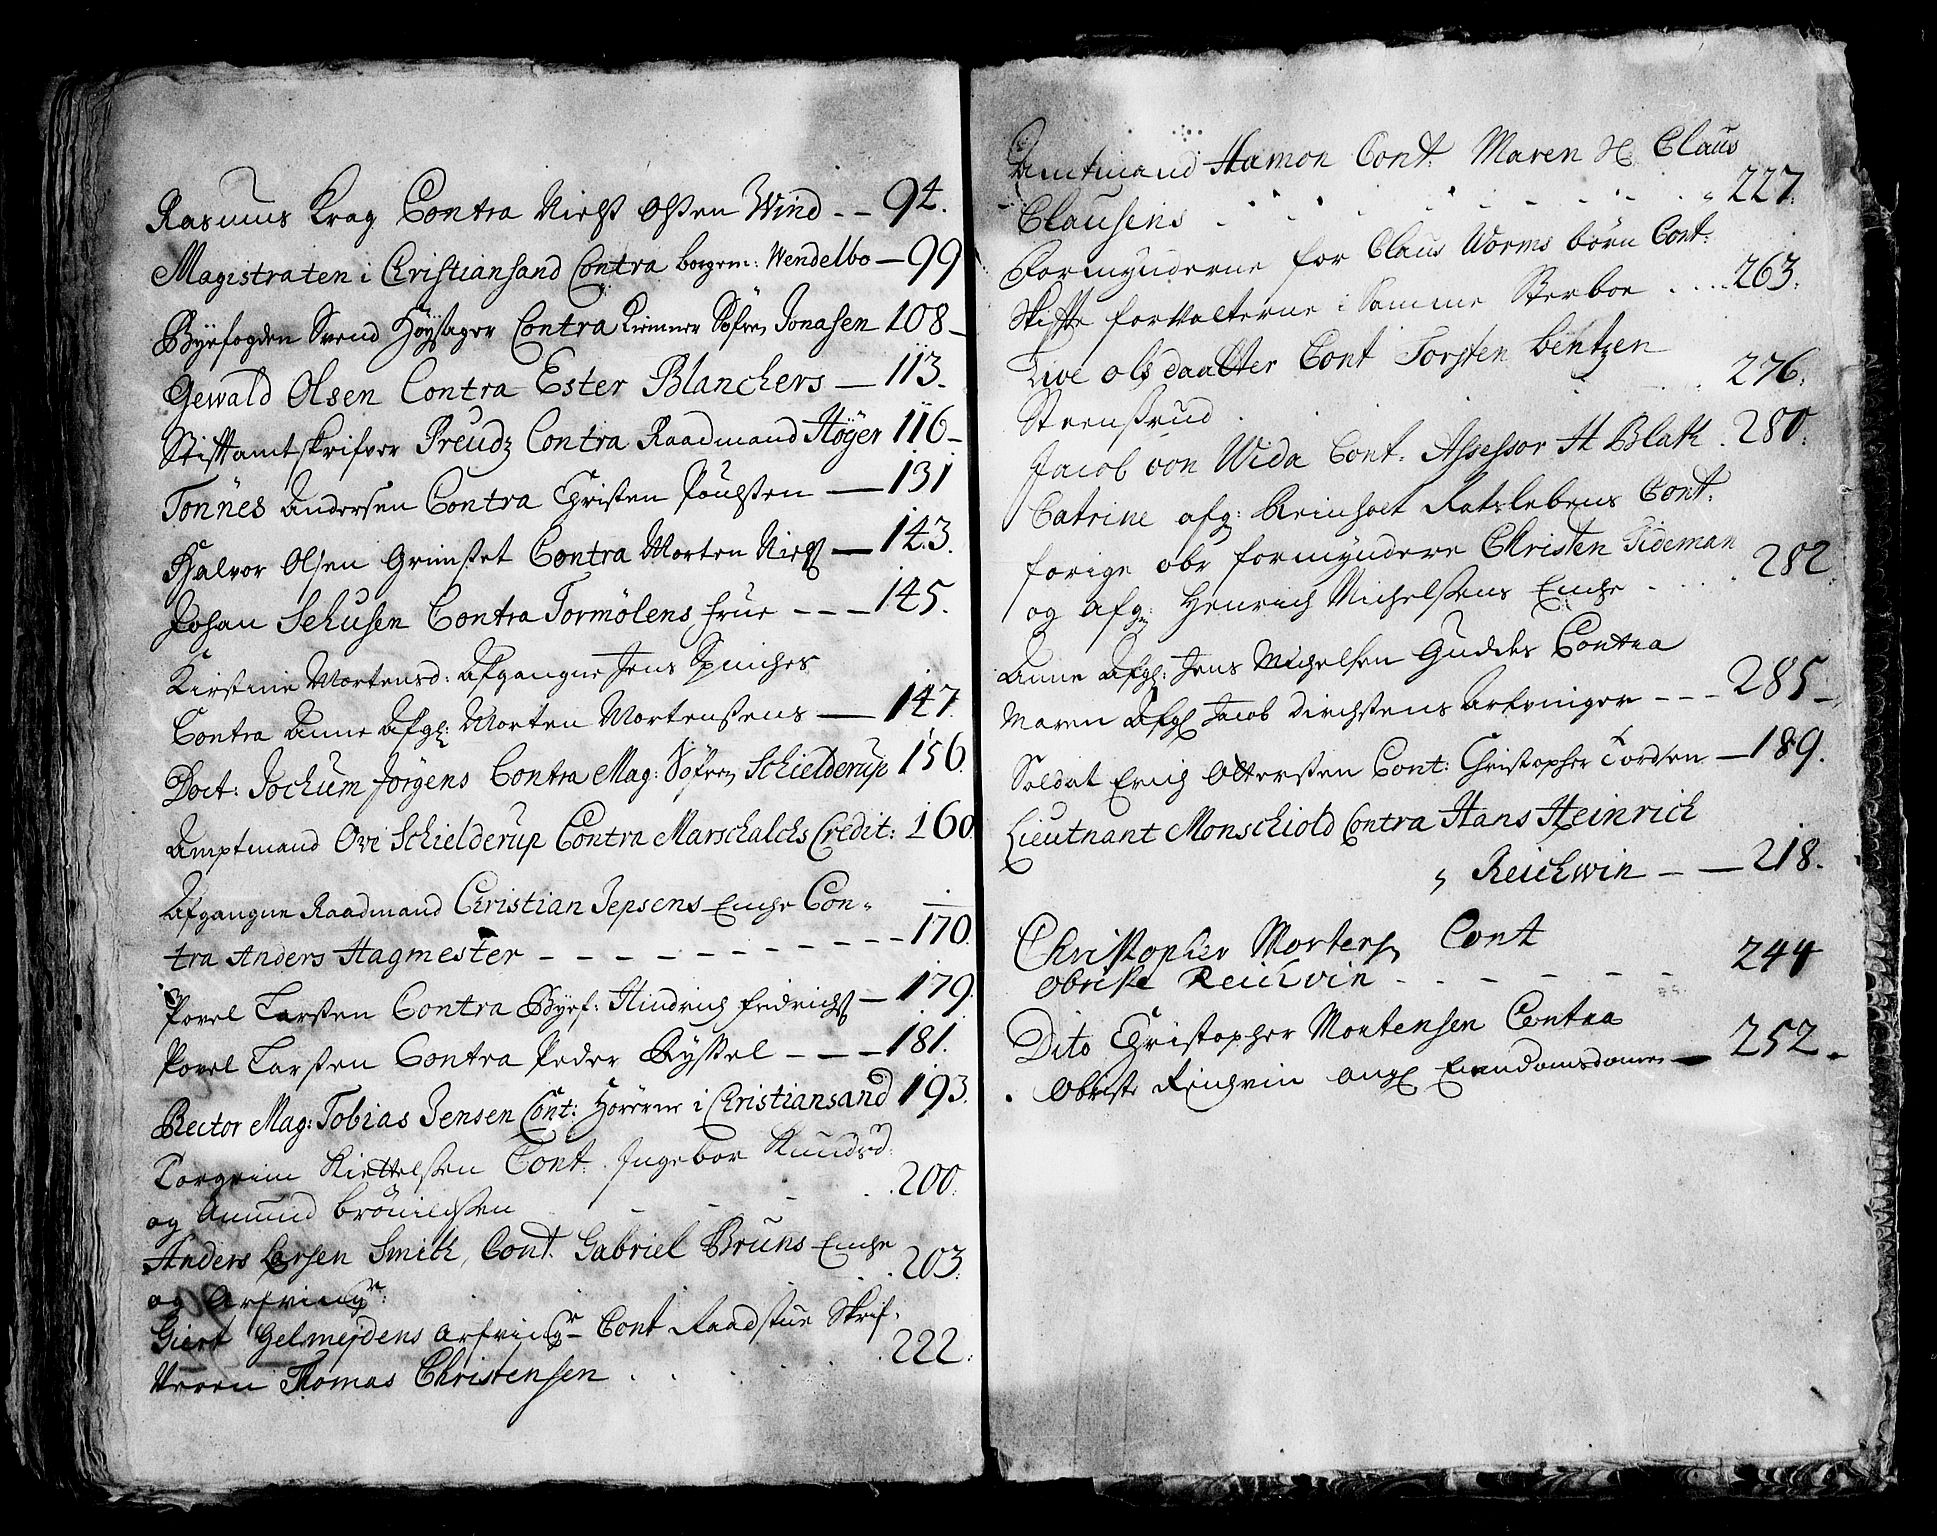 Rasmus Krag Contra Niels Olsen Wind -- 94.
Magistraten i Christiansand Contra borgem: Wendelbo — 99
Byefogden Svend Höysager Contra Kiemner Söfren Jonasen 108-
Gewald Olsen Contra Ester Blanchers — 113.
Stiftamtskrifver Preudz Contra Raadmand Höyer 116-
Tönnes Andersen Contra Christen Poulsen — 131
Halvor Olsen Grimstet Contra Morten Niels — 143.
Johan Sehusen Contra Tormölens frue --- 145.
Kirstine Mortensd: Afgangne Jens
Contra Anne Afgl: Morten Mortensens — 147.
Doct: Jochum Jörgens Contra Mag: Söfren Schielderup 156.
Amptmand Ove Schielderup Contra Marschalchs Credit: 160
Afgangne Raadmand Christian Jepsens Enche Con-
tra Anders Hagmester - - - - - - - - 170.
Povel Larsen Contra Byef: Hindrich fridrichs — 179.
Povel Larsen Contra Peder Ryssel --- 181.
Rector Mag: Tobias Jensen Cont: Hörerne i Christiansand 193.
Torgrim Kiettelsen Cont. Ingebor Knudsd:
og Amund . . 200.
Anders Larsen Smith, Cont. Gabriel Bruns Enche
og Arfving: . . 203.
Giert Gelmeydens arfving: Cont Raadstue Skrif-
veren Thomas Christensen . . . 222.
Amtmand Hamon Cont: Maren Sl Claus
Clausens . . . . . . . . 227.
Formynderne for Claus Worms börn Cont:
Skifte forvalterne i Samme Sterboe . . . 263.
Live olsdaatter Cont Torsten bentzen
Steensrud . . . . 276.
Jacob von Wida Cont. Assessor H Blath . 280.
Catrine afg: Reinholt Ratslebens Cont.
forige obr formyndere Christen Tideman
og afg: Henrich Michelsens Enche . . . 282.
Anne Afgl: Jens Michelsen Guddes Contra
Maren Afgl Jacob Dirchsens Arfvinger --- 285-
Soldat Erich Ottersen Cont: Christopher Tordsen — 189.
Lieutnant Monschiold Contra Hans Heinrich
Reichwin -- 218.
Christopher Mortens Cont
obriste Reichvin - - - - - 244
Dito Christopher Mortensen Contra
Obriste Reichvin ang Eiendomsdomen — 252.